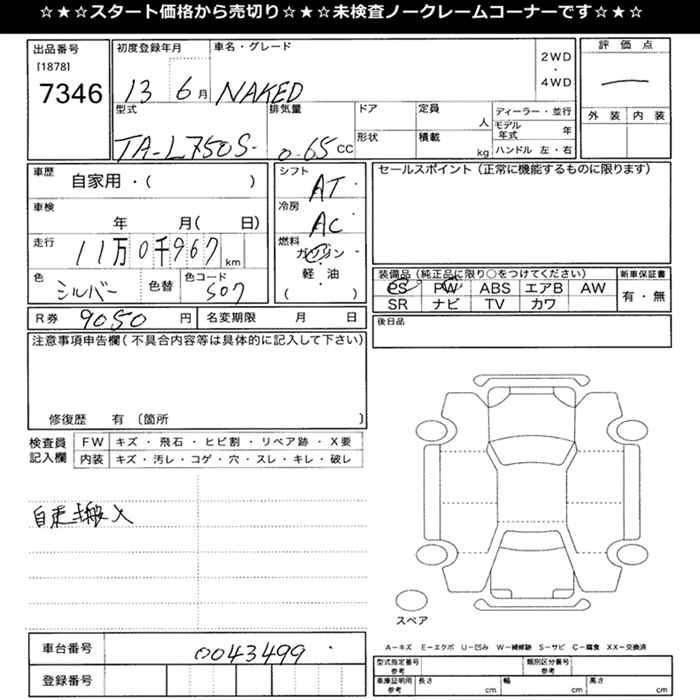 ☆★☆★スタート価格から売切り☆★☆★未検査ノークレームコーナーです☆★☆
出品番号
[1878]
7346
初度登録年月
13 6月
車名・グレード
NAKED
2WD
・
4WD
評価点
—
外装 内装
型式
TA-L750S-
排気量
0.65CC
ドア
形状
定員
人
積載
kg
ディーラー・並行
モデル年式 年
ハンドル 左・右
車歴
自家用・( )
車検
年 月( 日)
走行
11万0千967km
色
シルバー
色替
色コード
S07
シフト
AT
冷房
AC
燃料
ガソリン
・
軽油
( )
セールスポイント(正常に機能するものに限ります)
装備品(純正品に限り○をつけてください)
PS PW ABS エアB AW
SR ナビ TV カワ
新車保証書
有・無
R券 9050円
名変期限 月 日
後日品
注意事項申告欄(不具合内容等は具体的に記入して下さい)
修復歴 有 〔箇所 )
検査員
記入欄
FW キズ・飛石・ヒビ割・リペア跡・X要
内装 キズ・汚レ・コゲ・穴・スレ・キレ・破レ
自走搬入
スペア
A-キズ E-エクボ U-凹み W-補修跡 S-サビ C-腐食 XX-交換済
車台番号 0043499
登録番号
型式指定番号
参考
類別区分番号
参考
車庫証明用
参考
長さ cm
幅 cm
高さ cm